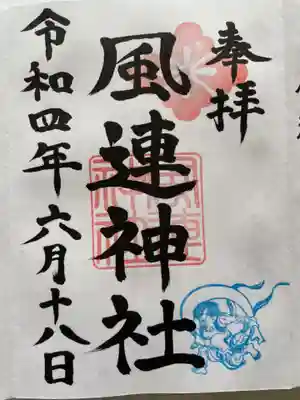 奉拝
風連神社
令和四年六月十八日